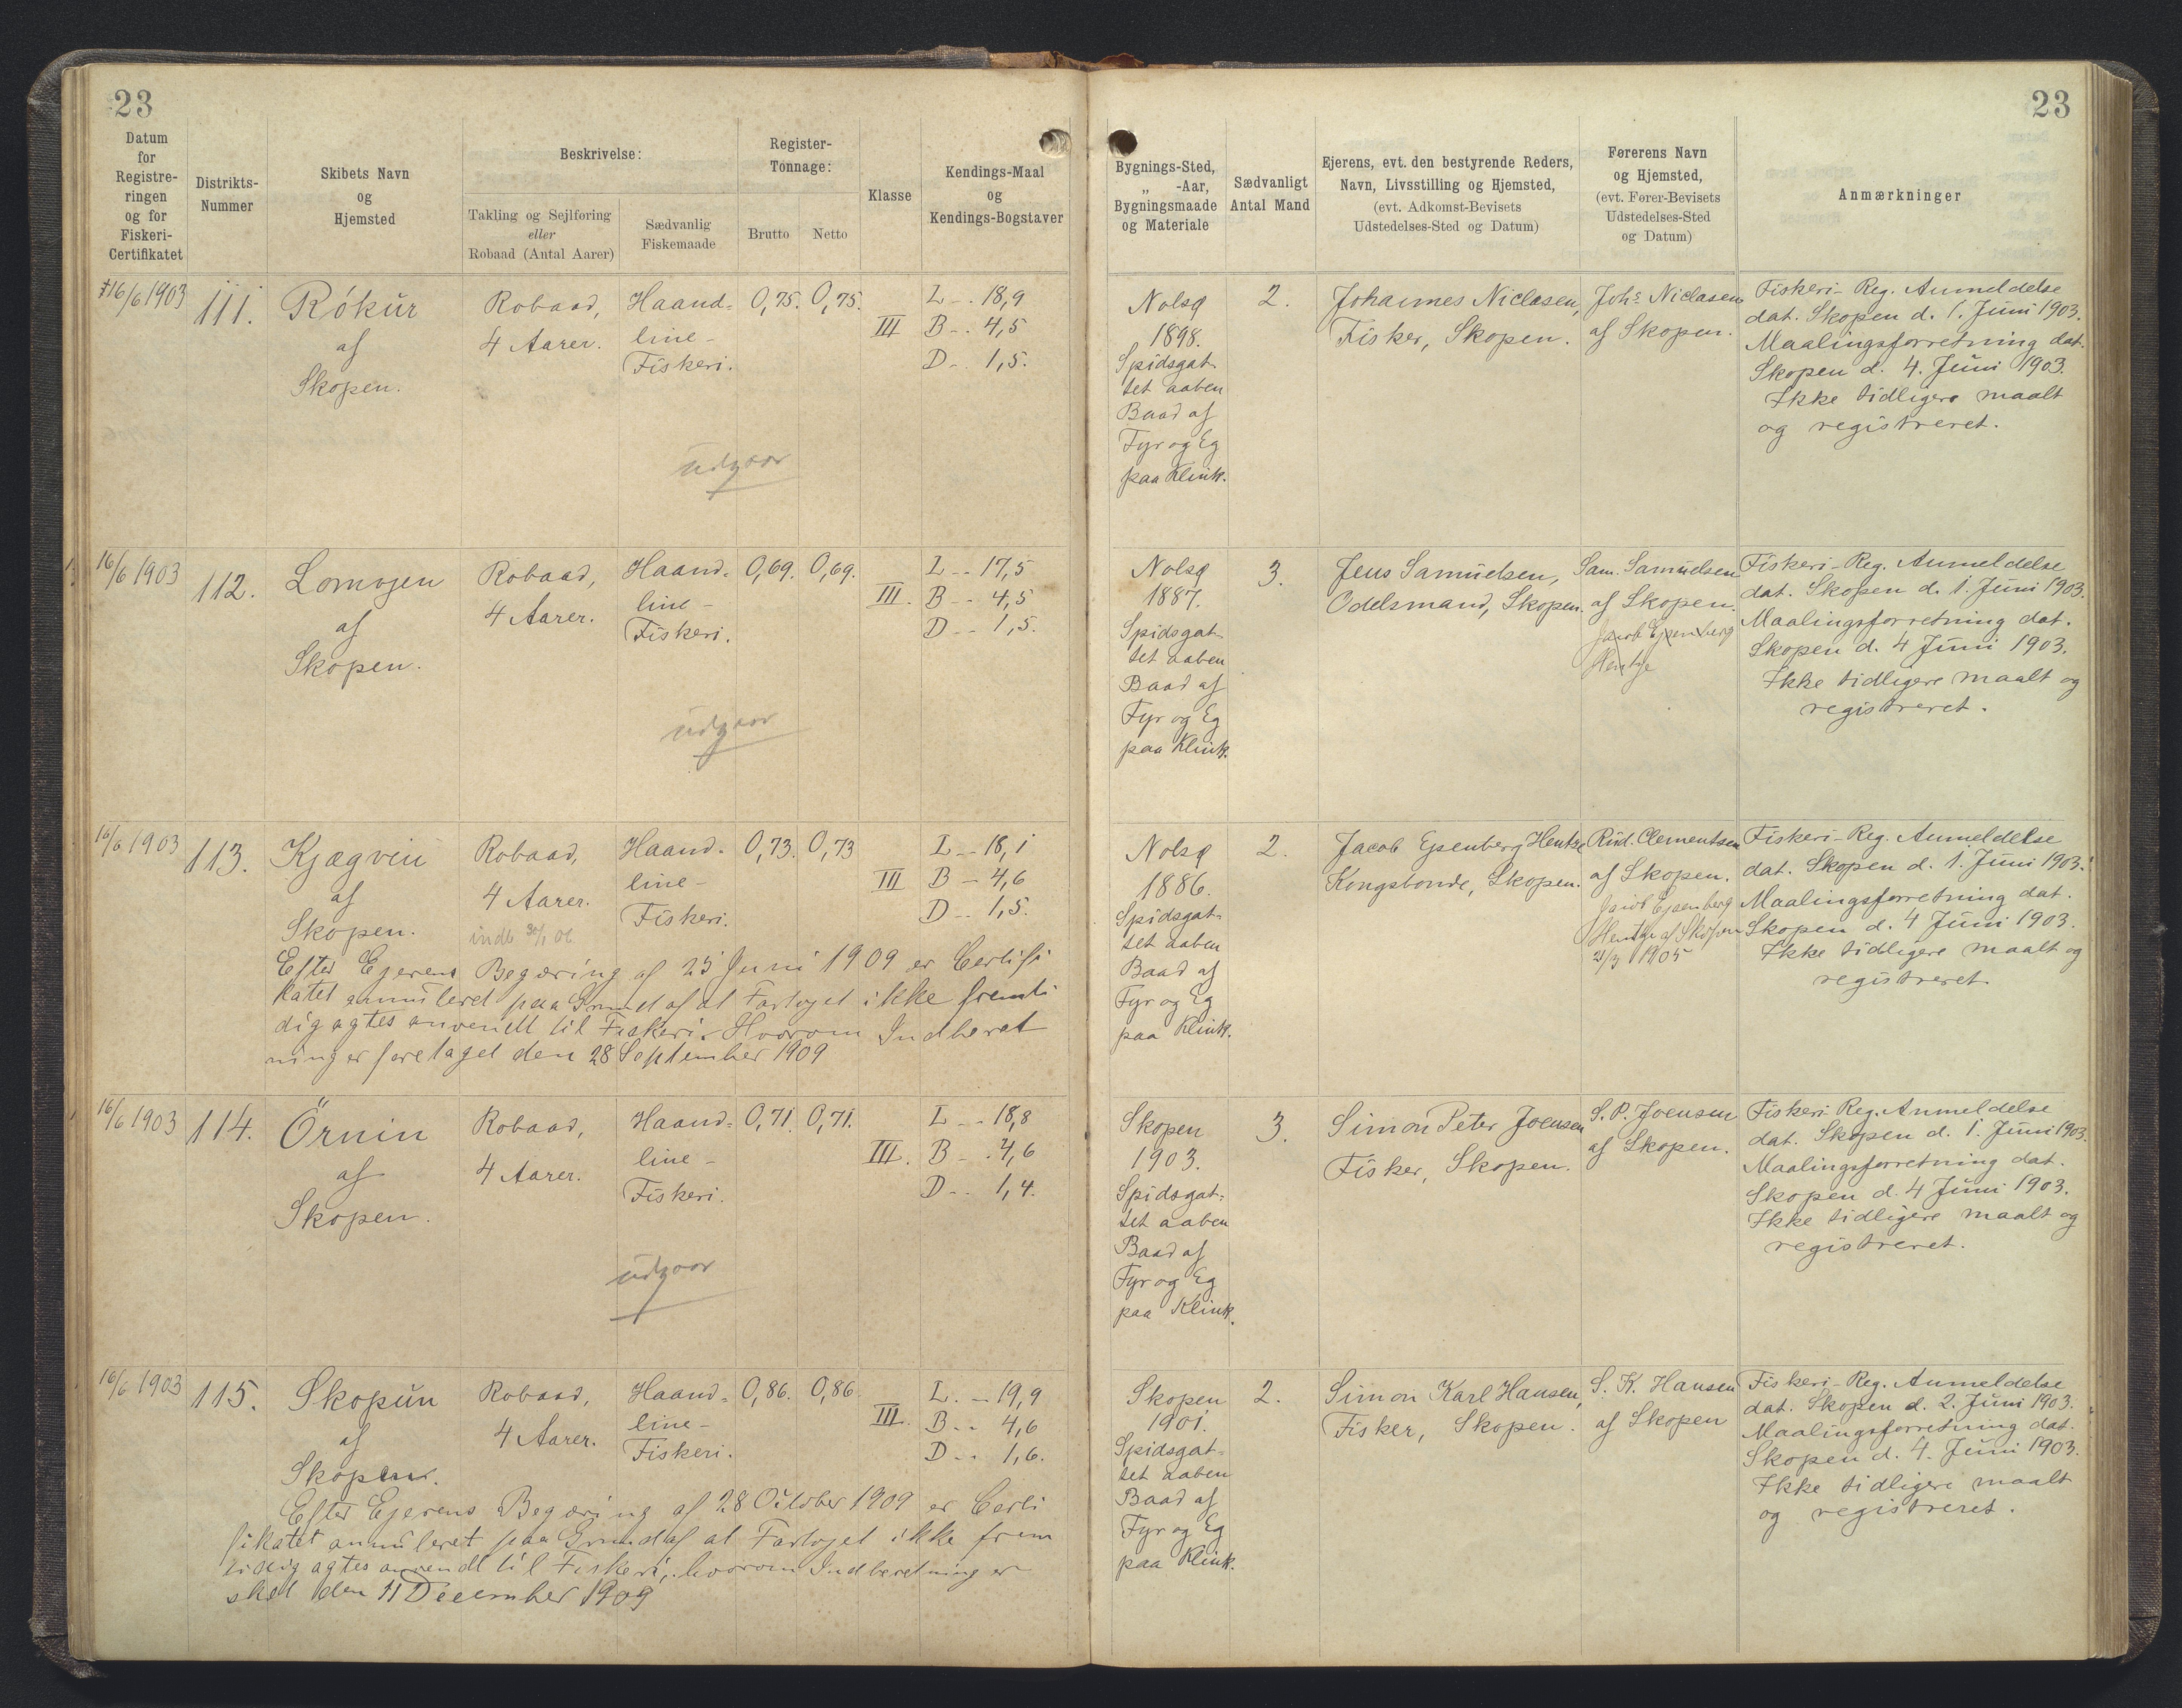 23
23
Datum
for
Registre-
ringen
og for
Fiskeri-
Certifikatet
Distrikts-
Nummer
Skibets Navn
og
Hjemsted
Beskrivelse:
Takling og Sejlføring
eller
Robaad (Antal Aarer)
Sædvanlig
Fiskemaade
Register-
Tonnage:
Brutto
Netto
Klasse
Kendings-Maal
og
Kendings-Bogstaver
Bygnings-Sted,
„ -Aar,
Bygningsmaade
og Materiale
Sædvanligt
Antal Mand
Ejerens, evt. den bestyrende Reders,
Navn, Livsstilling og Hjemsted,
(evt. Adkomst-Bevisets
Udstedelses-Sted og Datum)
Førerens Navn
og Hjemsted,
(evt. Fører-Bevisets
Udstedelses-Sted
og Datum)
Anmærkninger
16/6 1903
111.
Rókur
af
Skopen.
Robaad,
4 Aarer.
Haand-
line-
Fiskeri.
0,75.
0,75.
III
L - . 18,9
B - . 4,5
D - . 1,5.
udgaar
Nolsø
1898.
Spidsgat-
tet aaben
Baad af
Fyr og Eg
paa Klink.
2.
Johannes Niclasen,
Fisker, Skopen.
Johs Niclasen
af Skopen.
Fiskeri-Reg. Anmeldelse
dat. Skopen d. 1. Juni 1903.
Maalingsforretning dat.
Skopen d. 4. Juni 1903.
Ikke tidligere maalt
og registreret.
16/6 1903
112.
Lomvjen
af
Skopen.
Robaad,
4 Aarer.
Haand-
line-
Fiskeri.
0,69.
0,69.
III.
L - - 17,5
B - - 4,5
D - - 1,5.
udgaar
Nolsø
1887.
Spidsgat-
tet aaben
Baad af
Fyr og Eg
paa Klink.
3.
Jens Samuelsen,
Odelsmand, Skopen.
Sam. Samuelsen
af Skopen.
Jacob Ejsenberg
Hentze
Fiskeri-Reg. Anmeldelse
dat. Skopen d. 1. Juni 1903.
Maalingsforretning dat.
Skopen d. 4 Juni 1903.
Ikke tidligere maalt og
registreret.
16/6 1903
113.
Kjægvin
af
Skopen.
Robaad,
4 Aarer.
indb 30/1 06
Haand-
line-
Fiskeri.
0,73.
0,73
III
L - - 18,1
B - 4,6
D - - 1,5.
Efter Ejerens Begæring af 25 Juni 1909 er Certifi
katet annuleret paa Grund af at Fartøjet ikke fremti
dig agtes anvendt til Fiskeri. Hvorom Indberet
ning er foretaget den 28 September 1909
Nolsø
1886.
Spidsgat-
tet aaben
Baad af
Fyr og Eg
paa Klink.
2.
Jacob Ejsenberg Hentze
Kongsbonde, Skopen.
Rud. Clementsen
af Skopen.
Jacob Ejsenberg
Hentze af Skopen
21/3 1905
Fiskeri-Reg. Anmeldelse
dat. Skopen d. 1. Juni 1903.
Maalingsforretning dat.
Skopen d. 4 Juni 1903.
Ikke tidligere maalt og
registreret.
16/6 1903
114.
Örnin
af
Skopen.
Robaad,
4 Aarer.
Haand-
line-
Fiskeri.
0,71.
0,71.
III.
L - - 18,8
B - . 4,6
D - . 1,4.
udgaar
Skopen
1903.
Spidsgat-
tet aaben
Baad af
Fyr og Eg
paa Klink.
3.
Simon Peter Joensen
Fisker, Skopen.
S. P. Joensen
af Skopen.
Fiskeri-Reg. Anmeldelse
dat. Skopen d. 1. Juni 1903.
Maalingsforretning dat.
Skopen d. 4 Juni 1903.
Ikke tidligere maalt og
registreret.
16/6 1903
115.
Skopun
af
Skopen.
Robaad,
4 Aarer.
Haand-
line-
Fiskeri.
0,86.
0,86
III.
L. - 19,9
B - . 4,6
D - . 1,6.
Efter Ejerens Begæring af 28 October 1909 er Certi
fikatet annuleret paa Grund af at Fartøjet ikke frem
tidig agtes anvendt til Fiskeri, hvorom Indberetning er
sket den 11 December 1909
Skopen
1901.
Spidsgat-
tet aaben
Baad af
Fyr og Eg
paa Klink.
2.
Simon Karl Hansen,
Fisker, Skopen.
S. K. Hansen
af Skopen
Fiskeri-Reg. Anmeldelse
dat. Skopen d. 2. Juni 1903.
Maalingsforretning dat.
Skopen d. 4. Juni 1903.
Ikke tidligere maalt
og registreret.